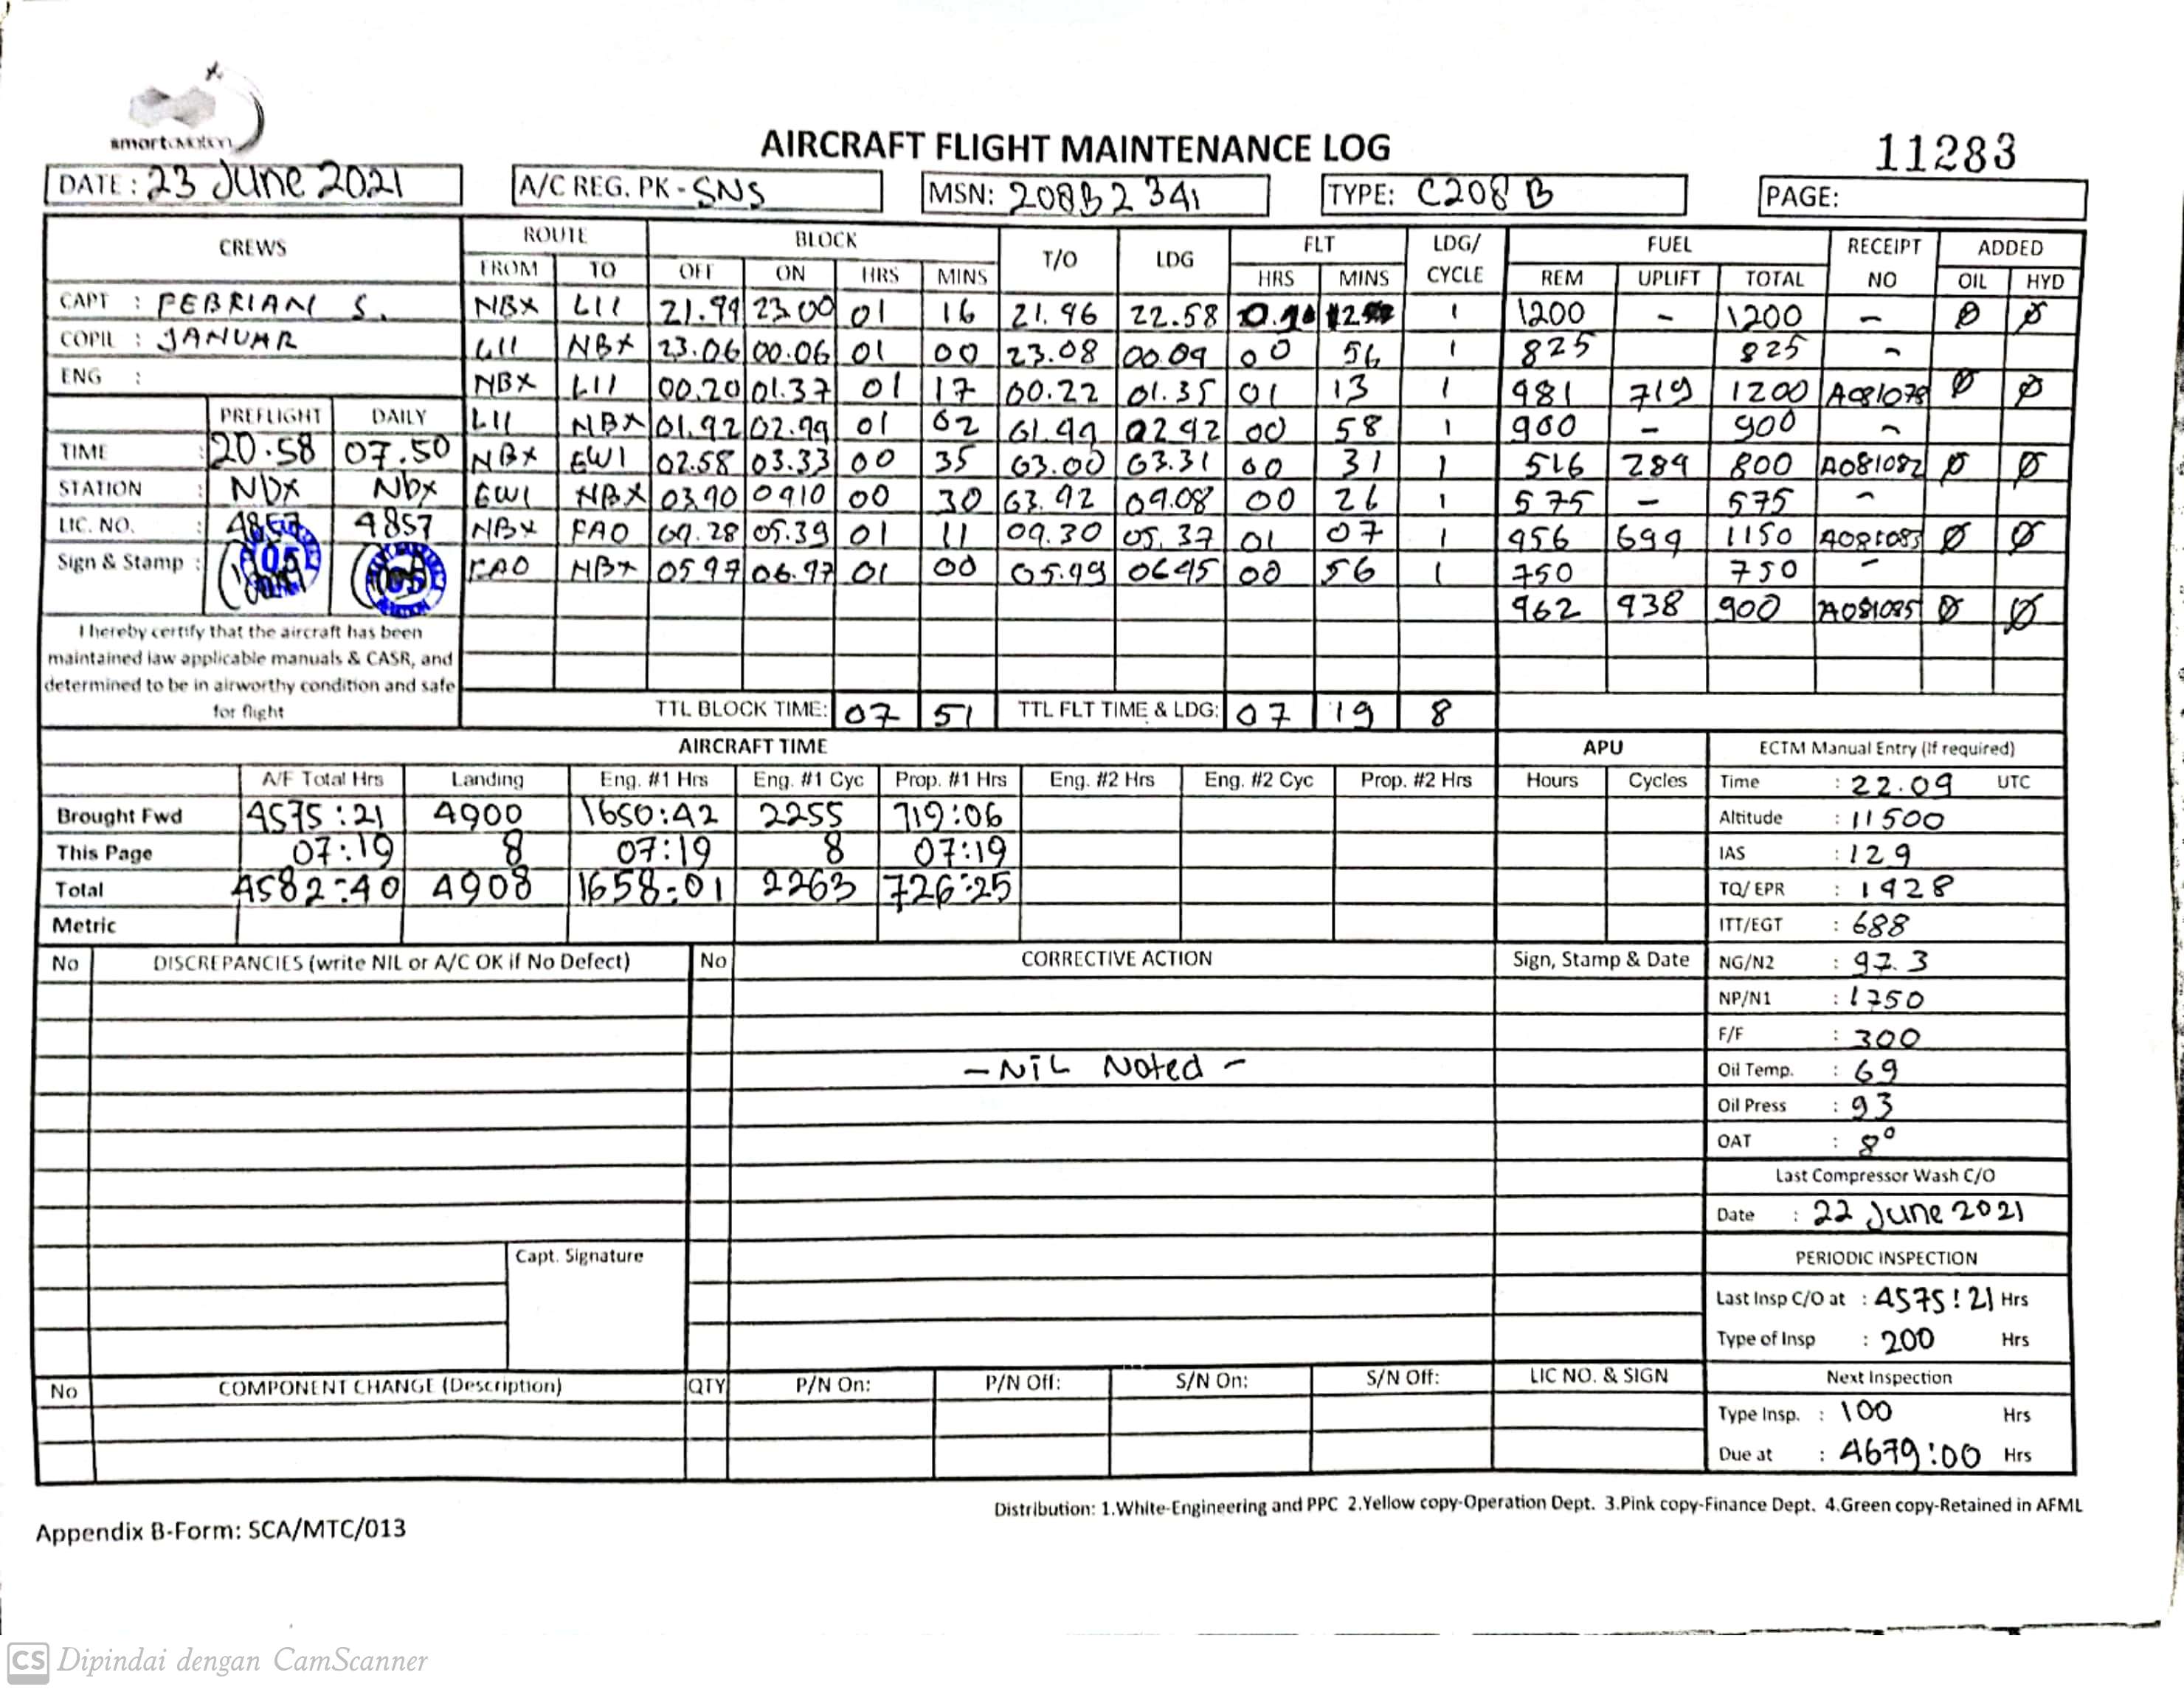 smart aviation
AIRCRAFT FLIGHT MAINTENANCE LOG
11283
DATE : 23 June 2021 A/C REG. PK - SNS MSN: 208B2341 TYPE: C208B PAGE:
CREWS ROUTE BLOCK T/O LDG FLT LDG/ CYCLE FUEL RECEIPT NO ADDED
FROM TO OFF ON HRS MINS HRS MINS REM UPLIFT TOTAL OIL HYD
CAPT : FEBRIAN S. NBX LII 21.44 23.00 01 16 21.46 22.58 1 1200 - 1200 - Ø Ø
COPIL : JANUAR LII NBX 23.06 00.06 01 00 23.08 00.04 00 56 1 825 825 -
ENG : NBX LII 00.20 01.37 01 17 00.22 01.35 01 13 1 481 719 1200 A081079 Ø Ø
PREFLIGHT DAILY LII NBX 01.42 02.44 01 02 01.44 02 42 00 58 1 900 - 900 -
TIME : 20.58 07.50 NBX EWI 02.58 03.33 00 35 03.00 03.31 00 31 1 516 284 800 A081082 Ø Ø
STATION : NBX NBX EWI NBX 03.40 0410 00 30 03.42 04.08 00 26 1 575 - 575 -
LIC. NO. : 4857 4857 NBX FAO 04.28 05.39 01 11 04.30 05.37 01 07 1 456 694 1150 A081083 Ø Ø
Sign & Stamp : FAO NBX 05 47 06.47 01 00 05.49 0645 00 56 1 750 750 -
462 438 900 A081085 Ø Ø
I hereby certify that the aircraft has been
maintained iaw applicable manuals & CASR, and
determined to be in airworthy condition and safe
for flight
TTL BLOCK TIME: 07 51 TTL FLT TIME & LDG: 07 19 8
AIRCRAFT TIME APU ECTM Manual Entry (If required)
A/F Total Hrs Landing Eng. #1 Hrs Eng. #1 Cyc Prop. #1 Hrs Eng. #2 Hrs Eng. #2 Cyc Prop. #2 Hrs Hours Cycles Time : 22.09 UTC
Brought Fwd 4575:21 4900 1650:42 2255 719:06 Altitude : 11500
This Page 07:19 8 07:19 8 07:19 IAS : 129
Total 4582:40 4908 1658:01 2263 726:25 TQ/ EPR : 1428
Metric ITT/EGT : 688
No DISCREPANCIES (write NIL or A/C OK if No Defect) No CORRECTIVE ACTION Sign, Stamp & Date NG/N2 : 97.3
NP/N1 : 1750
F/F : 300
- NIL Noted - Oil Temp. : 69
Oil Press : 93
OAT : 8°
Last Compressor Wash C/O
Date : 22 June 2021
Capt. Signature PERIODIC INSPECTION
Last Insp C/O at : 4575:21 Hrs
Type of Insp : 200 Hrs
No COMPONENT CHANGE (Description) QTY P/N On: P/N Off: S/N On: S/N Off: LIC NO. & SIGN Next Inspection
Type Insp. : 100 Hrs
Due at : 4679:00 Hrs
Distribution: 1.White-Engineering and PPC 2.Yellow copy-Operation Dept. 3.Pink copy-Finance Dept. 4.Green copy-Retained in AFML
Appendix B-Form: SCA/MTC/013
CS Dipindai dengan CamScanner